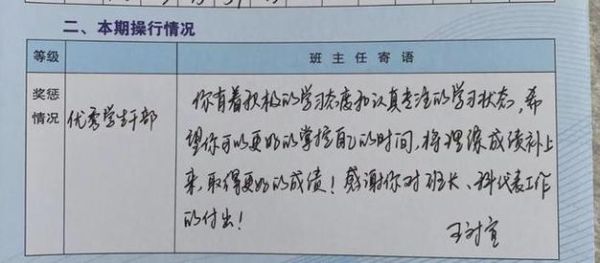 二、本期操行情况
等级
班主任寄语
奖惩
情况
优秀学生干部
你有着积极的学习态度和认真专注的学习状态，希
望你可以更好的掌控自己的时间，将理综成绩补上
来，取得更好的成绩！感谢你对班长、科代表工作
的付出！